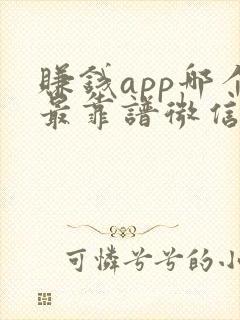 賺錢app哪个
最靠譜微信
可憐兮兮的小